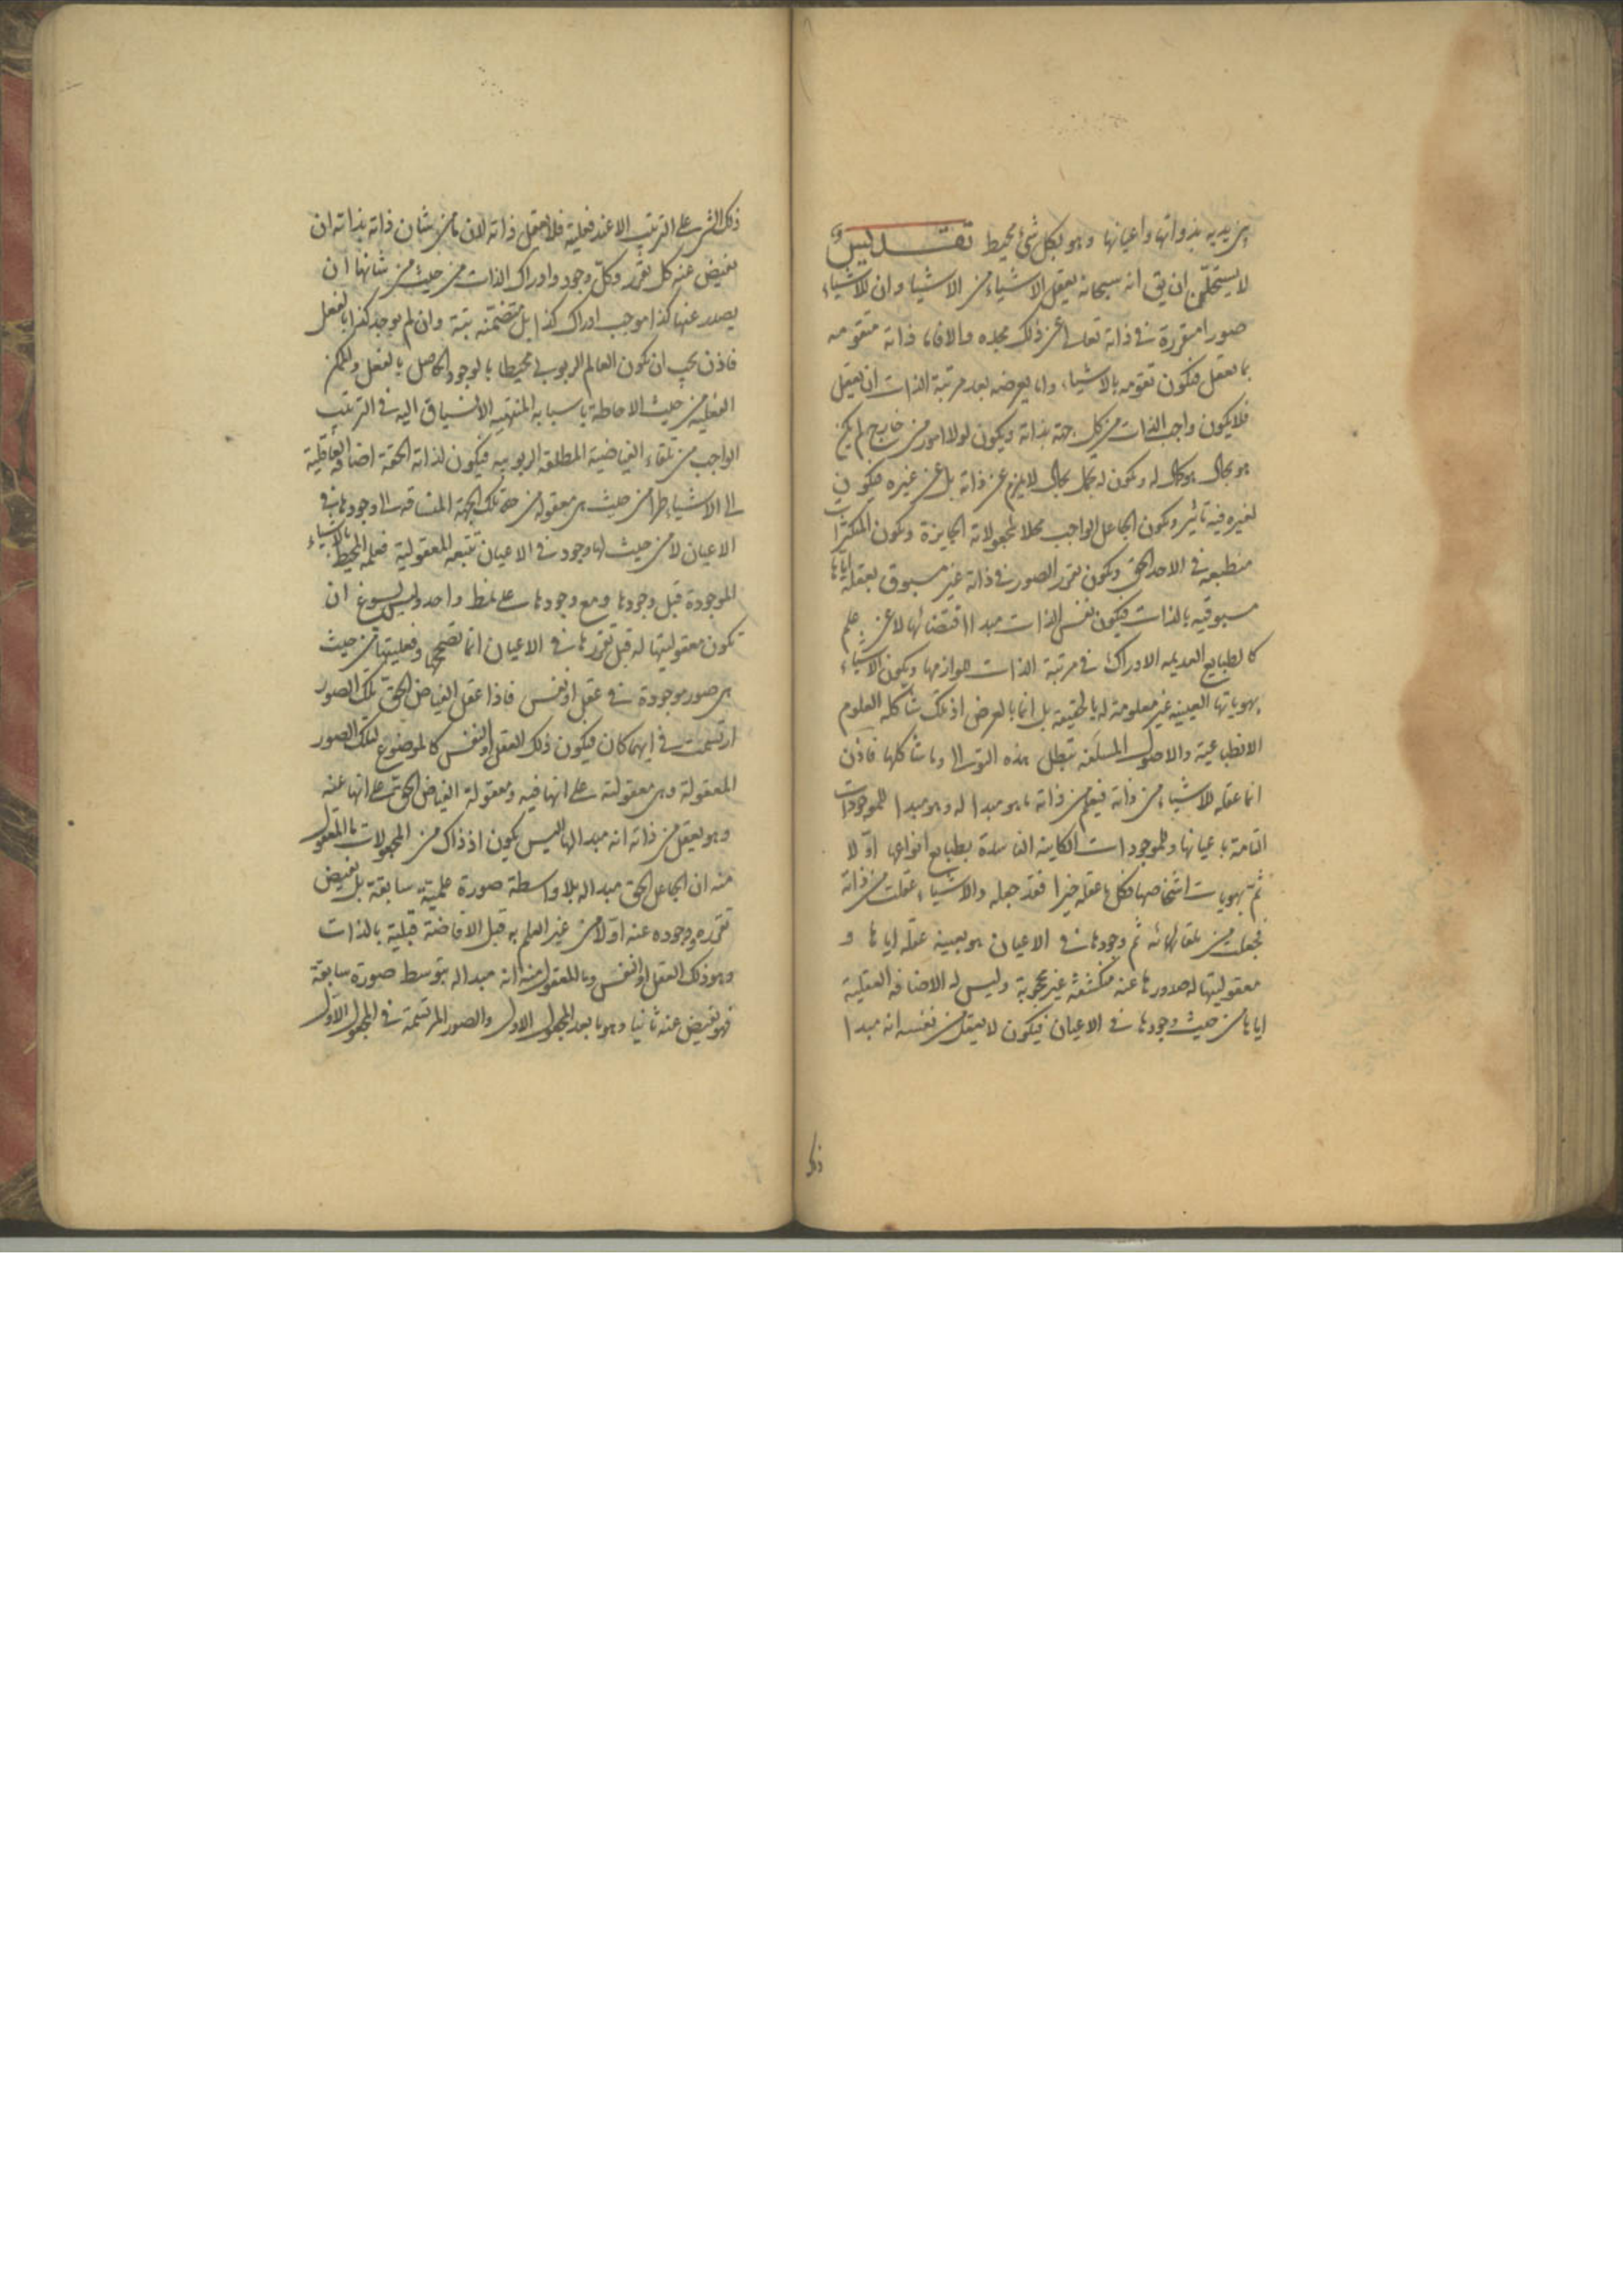 بين يديه بذواتها واعيانها وهو بكل شئ محيط تقديس و
لا يستحلن ان يق انه سبحانه يعقل الاشياء من الاشياء وان للاشياء
صورا متقررة في ذاته تعالى عن ذلك مجده والا فاما ذاته متقومه
بما يعقل فيكون تقومه بالاشياء واما يعرضه بعد مرتبة الذات ان يعقل
فلا يكون واجب الذات من كل جهته بذاته ويكون لولا امور من خارج لم يكن
هو بحال هو كمال له ويكون له بحال لا يلزم عن ذاته بل عن غيره فيكون
لغيره فيه تاثير ويكون الجاعل الواجب محلا لمجعولاته الجايزة ويكون المتكثرات
منطبعه في الاحد الحق ويكون تقرر الصور في ذاته غير مسبوق بعقله اياها
مسبوقيه بالذات فيكون نفس الذات مبدا اقتضائها لا عن علم
كالطبايع العديمه الادراك في مرتبة الذات للوازمها ويكون الاشياء
بهوياتها العينيه غير معلومة له بالحقيقة بل انما بالعرض اذ تلك شاكله العلوم
الانطباعية والاصول المسلفه تبطل هذه التوالى وما شاكلها فاذن
انما عقله للاشياء من ذاته فيعلم من ذاته ما هو مبدا له وهو مبدا للموجودات
التامة باعيانها وللموجودات الكاينه الفاسدة بطبايع انواعها اوّلا
ثم بهويات اشخاصها فكل ما عقله خيرا فقد جعله والاشياء عقلت من ذاته
فجعلت من تلقائها له ثم وجودها في الاعيان هو بعينه عقله اياها و
معقوليتها له صدورها عنه منكشفة غير محجوبة وليس له الاضافه العقلية
اياها من حيث وجودها في الاعيان فيكون لا يعقل من نفسه انه مبدا
ذلك
ذلك الشئ على الترتيب الا عند فعليته فلا يعقل ذاته لان من شان ذاته بذاته ان
يفيض عنه كل تقرر وكل وجود وادراك الذات من حيث من شانها ان
يصدر عنها كذا موجب ادراك كذا بل متضمنه بتة وان لم يوجد كذا بالفعل
فاذن يجب ان يكون العالم الربوبي محيطا بالوجود الحاصل بالفعل والممكن
الفعلية من حيث الاحاطة باسبابه المنتهيه الانسياق اليه في الترتيب
الواجب من تلقاء الفياضية المطلقة الربوبيه فيكون لذاته الحقة اضافة العاقلية
الى الاشياء طرا من حيث هي معقولة من جهة تلك الجهة المنساقه الى وجودها في
الاعيان لا من حيث لها وجود في الاعيان تتبعه المعقولية فعلمه المحيط بالاشياء
الموجودة قبل وجودها ومع وجودها على نمط واحد وليس يسوغ ان
تكون معقوليتها له قبل تقررها في الاعيان انما تصححها وفعليتها من حيث
هي صور موجودة في عقل او نفس فاذا عقل الفياض الحق تلك الصور
ارتسمت في ايهما كان فيكون ذلك العقل او النفس كالموضوع لتلك الصور
المعقولة وهي معقولته على انها فيه ومعقولة الفياض الحق على انها عنه
وهو يعقل من ذاته انه مبدا لها اليس يكون اذ ذاك من المجعولات ما المعقول
منه ان الجاعل الحق مبدا له بلا واسطة صورة علمية سابقة بل يفيض
تقرره ووجوده عنه اوّلا من غير العلم به قبل الافاضة قبلية بالذات
وهو ذلك العقل او النفس وما المعقول منه انه مبدا له بتوسط صورة سابقة
فهو يفيض عنه ثانيا وهو ما بعد المجعول الاول والصور المرتسمة في المجعول الاول